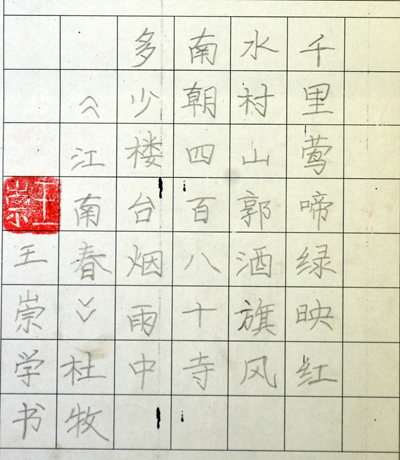 千里莺啼绿映红
水村山郭酒旗风
南朝四百八十寺
多少楼台烟雨中
《江南春》杜牧
王崇学书
王崇